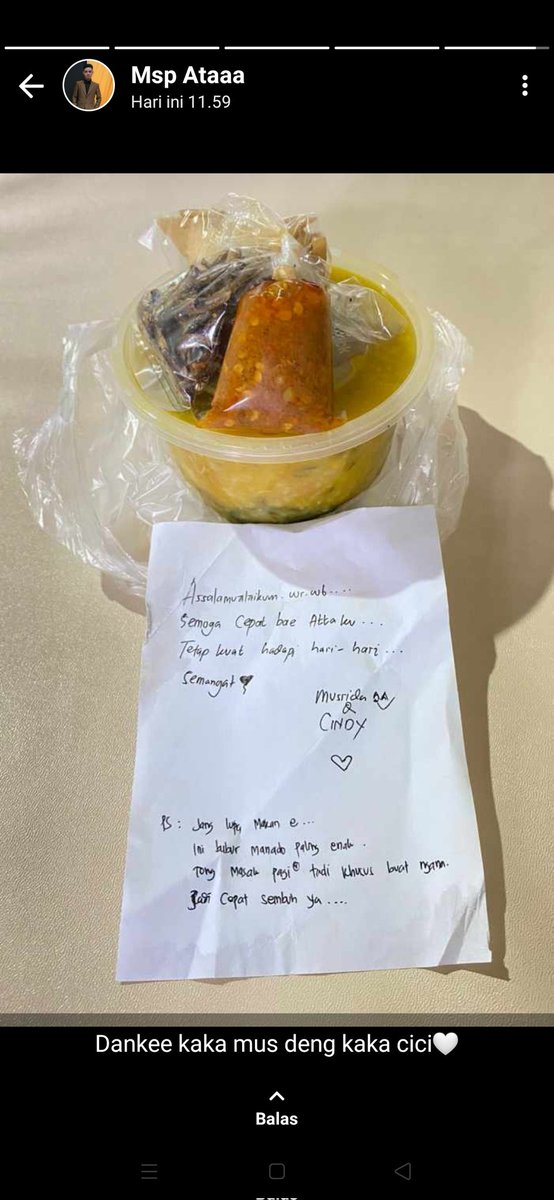 Msp Ataaa
Hari ini 11.59
Assalamualaikum. wr. wb....
Semoga Cepat bae Atta ku ...
Tetap kuat hadapi hari-hari ...
Semangat
Musrida
&
CINDY
PS : Jang lupa Makan e...
Ini bubur manado paling enak.
Tong Masak pagi² tadi khusus buat ngana.
Jadi Cepat sembuh ya ....
Dankee kaka mus deng kaka cici🤍
Balas